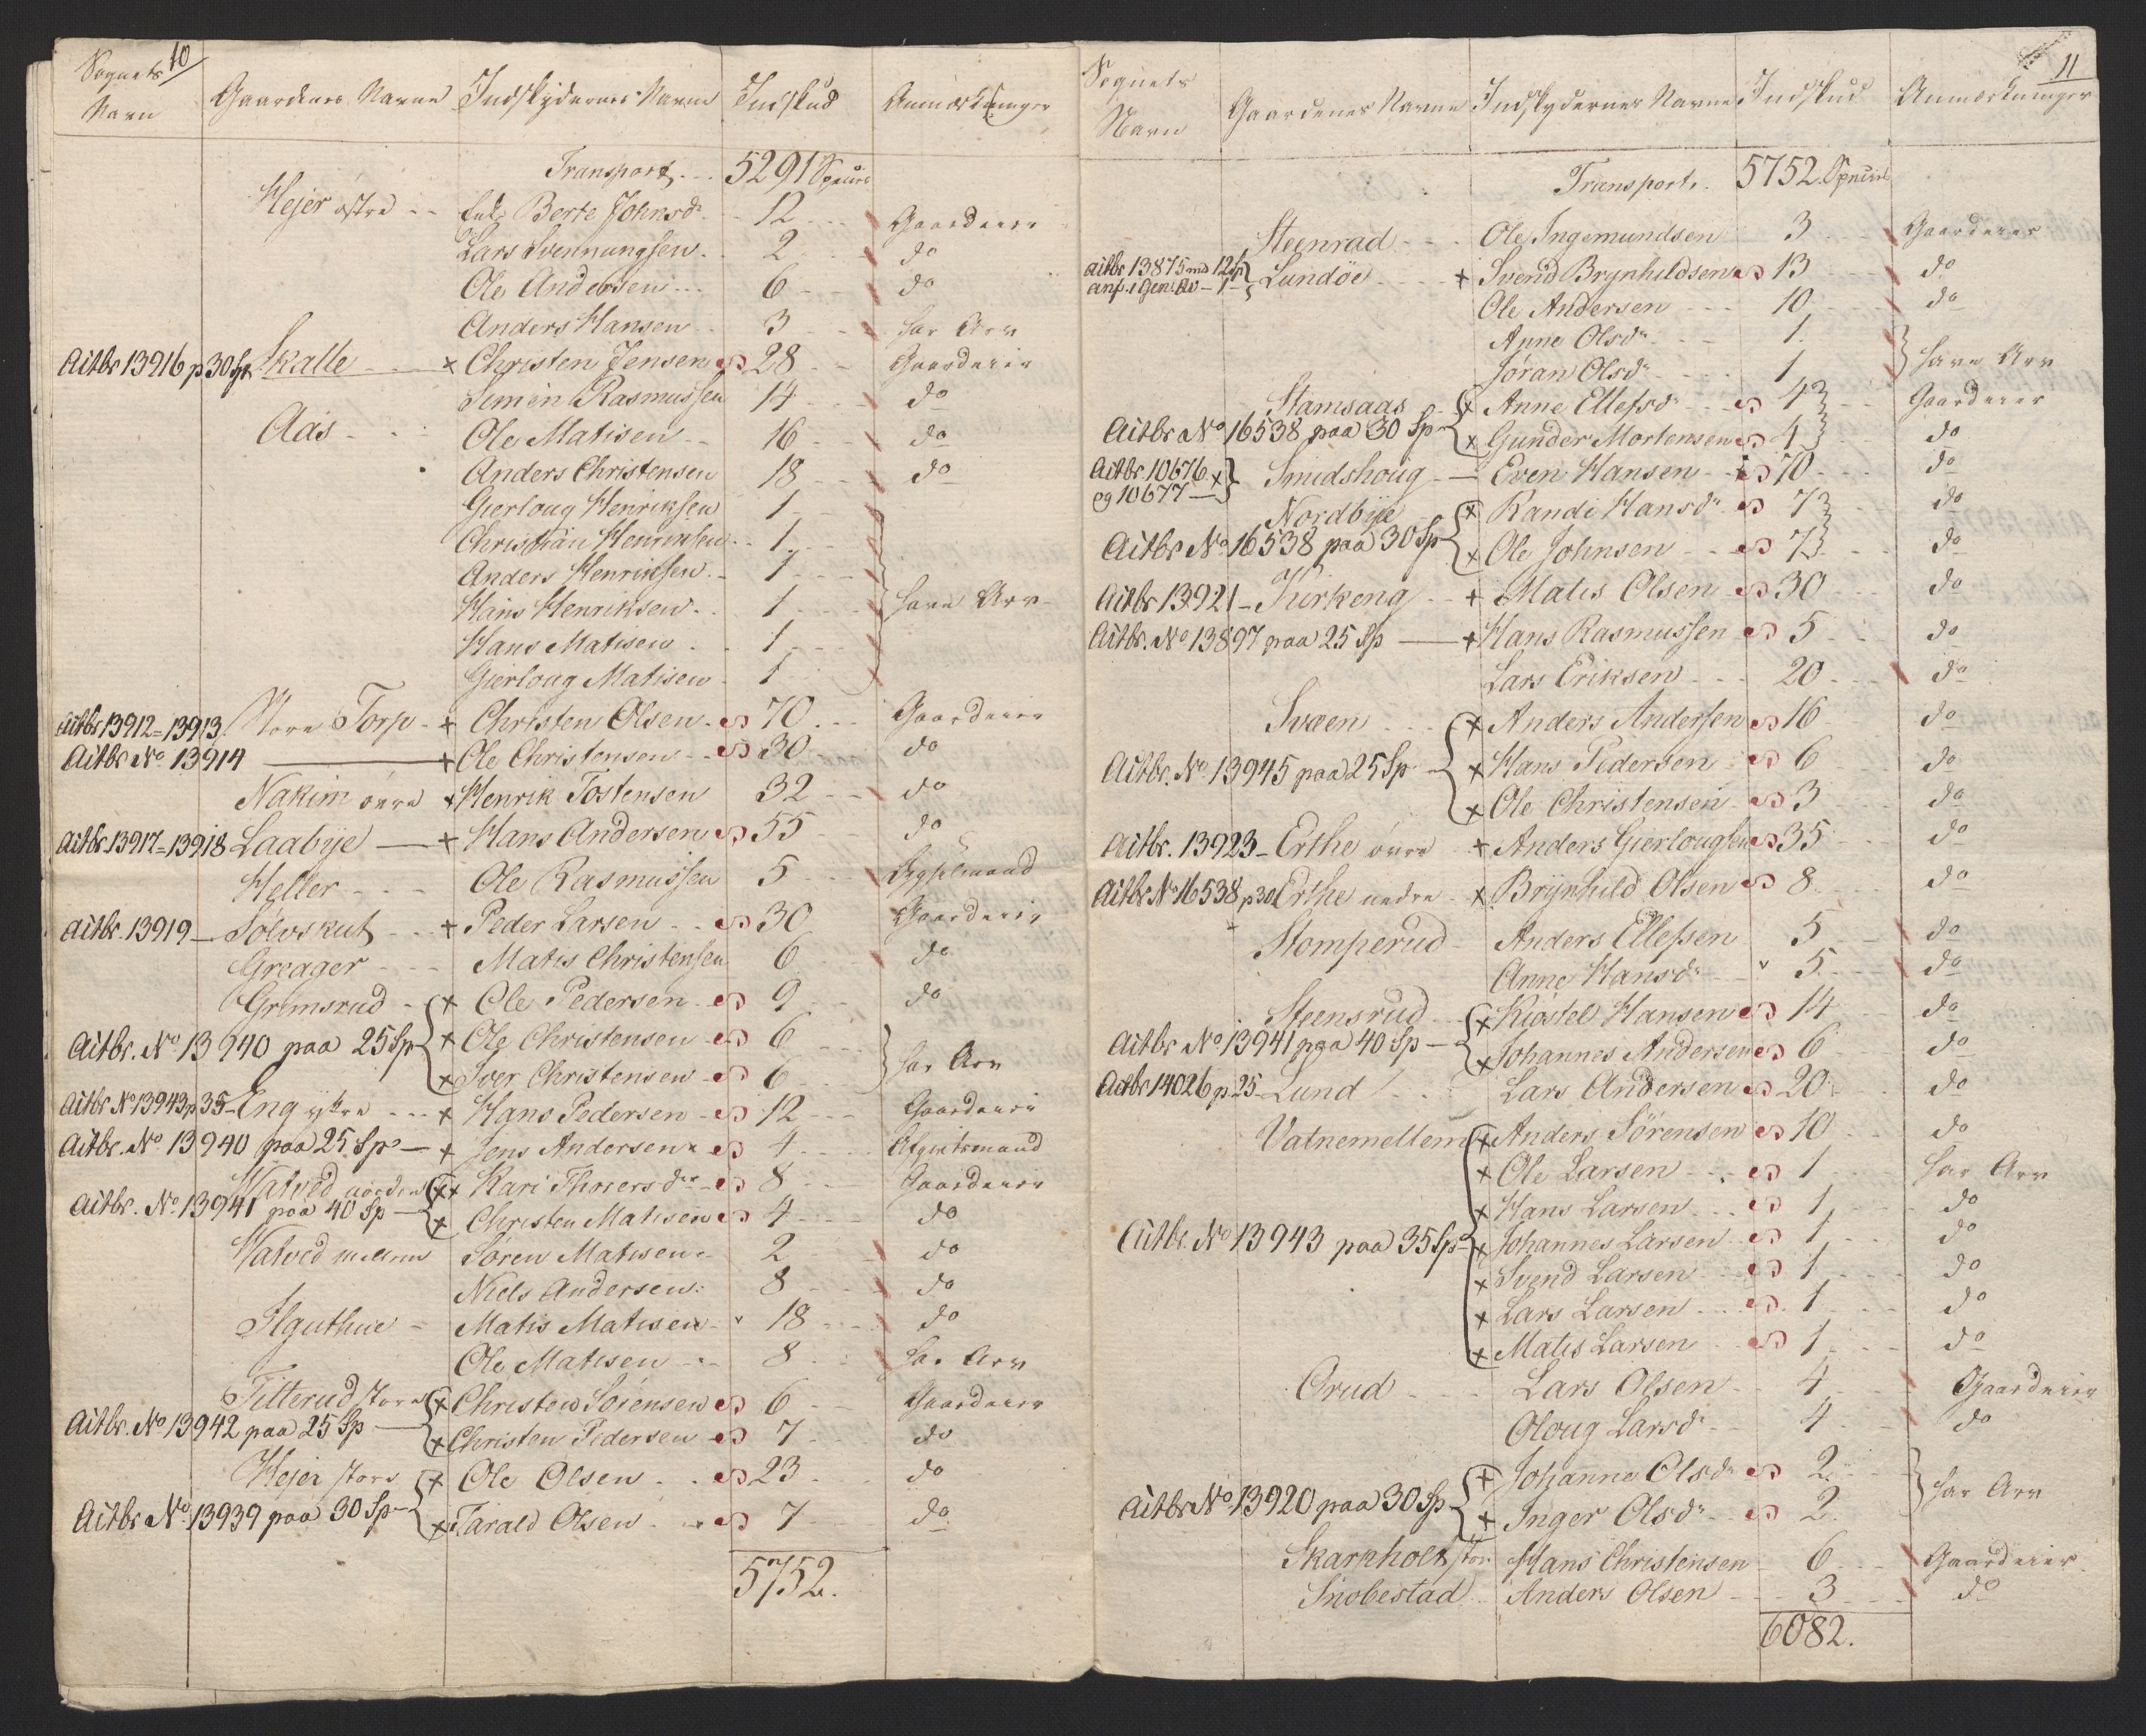 10
Sognets Navn Gaardenes Navne Indskydernes Navne Indskud Anmærkninger
Transport 5291 Specier
Hejer østre Enke Berte Johnsdr 12 Gaardeier
Lars Svennungsen 2 do
Ole Andersen 6 do
Anders Hansen 3 har Arv
Actbr 13916 p 30 Sp Skalle × Christen Jensen 28 Gaardeier
Simen Rasmussen 14 do
Aas Ole Matisen 16 do
Anders Christensen 18 do
Gierloug Henriksen 1
Christian Henriksen 1
Anders Henriksen 1
Hans Henriksen 1 have Arv
Hans Matisen 1
Gierloug Matisen 1
Actbr 13912=13913 Store Torp + Christen Olsen 70 Gaardeier
Actbr No 13914 + Ole Christensen 30 do
Nakim övre × Henrik Tostensen 32 do
Actbr. 13917=13918 Laabye + Hans Andersen 55 do
Heller Ole Rasmussen 5 Bygselmand
Actbr. 13919 Sölvskut + Peder Larsen 30 Gaardeier
Greager Matis Christensen 6 do
Grimsrud × Ole Pedersen 9 do
Actbr. No 13940 paa 25 Sp × Ole Christensen 6
× Iver Christensen 6 har Arv
Actbr No 13943 p 35 Eng ystre × Hans Pedersen 12 Gaardeier
Actbr. No 13940 paa 25 Sp + Jens Andersen 4 Afgivtsmand
Watved nordre ×× Kari Thorersdr 8 Gaardeier
Actbr. No 13941 paa 40 Sp × Christen Matisen 4 do
Watved mellem Sören Matisen 2 do
Niels Andersen 8 do
Ilguthue Matis Matisen 18 do
Ole Matisen 8 har Arv
Titterud store × Christen Sörensen 6 Gaardeier
Actbr. No 13942 paa 25 Sp × Christen Pedersen 7 do
Hejer store × Ole Olsen 23 do
Actbr No 13939 paa 30 Sp × Tarald Olsen 7 do
5752.
11
Sognets Navn Gaardenes Navne Indskydernes Navne Indskud Anmærkninger
Transport 5752 Specier
Steenrad Ole Ingemundsen 3 Gaardeier
Actbr 13875 med 12 Sp Lundöe + Svend Brynhildsen 13 do
Ole Andersen 10 do
Anne Olsdr 1
Jöran Olsdr 1 have Arv
Stamsaas × Anne Ellefsdr 4 Gaardeier
Actbr No 16538 paa 30 Sp × Gunder Mortensen 4 do
Actbr 10676 × Smidshoug Even Hansen 70 do
og 10677
Nordbye × Randi Hansdr 7 do
Actbr No 16538 paa 30 Sp × Ole Johnsen 7 do
Actbr 13921 Kirkeng + Matis Olsen 30 do
Actbr. No 13897 paa 25 Sp + Hans Rasmussen 5 do
Lars Eriksen 20 do
Svaen × Anders Andersen 16 do
Actbr. No 13945 paa 25 Sp × Hans Pedersen 6 do
× Ole Christensen 3 do
Actbr. 13923 Erthe övre + Anders Gierlougsen 35 do
Actbr No 16538 p 30 Erthe nedre × Brynhild Olsen 8 do
Stomperud Anders Ellefsen 5 do
Anne Hansdr 5 do
Steensrud × Kiöstel Hansen 14 do
Actbr No 13941 paa 40 Sp × Johannes Andersen 6 do
Actbr 14026 p. 25 Lund Lars Andersen 20 do
Vatnemellem × Anders Sörensen 10 do
× Ole Larsen 1 har Arv
× Hans Larsen 1 do
Actbr. No 13943 paa 35 Sp × Johannes Larsen 1 do
× Svend Larsen 1 do
× Lars Larsen 1 do
× Matis Larsen 1 do
Orud Lars Olsen 4 Gaardeier
Oloug Larsdr 4 do
+ Johanne Olsdr 2
Actbr No 13920 paa 30 Sp × Inger Olsdr 2 har Arv
Skarpholt stor Hans Christensen 6 Gaardeier
Snobestad Anders Olsen 3 do
6082.